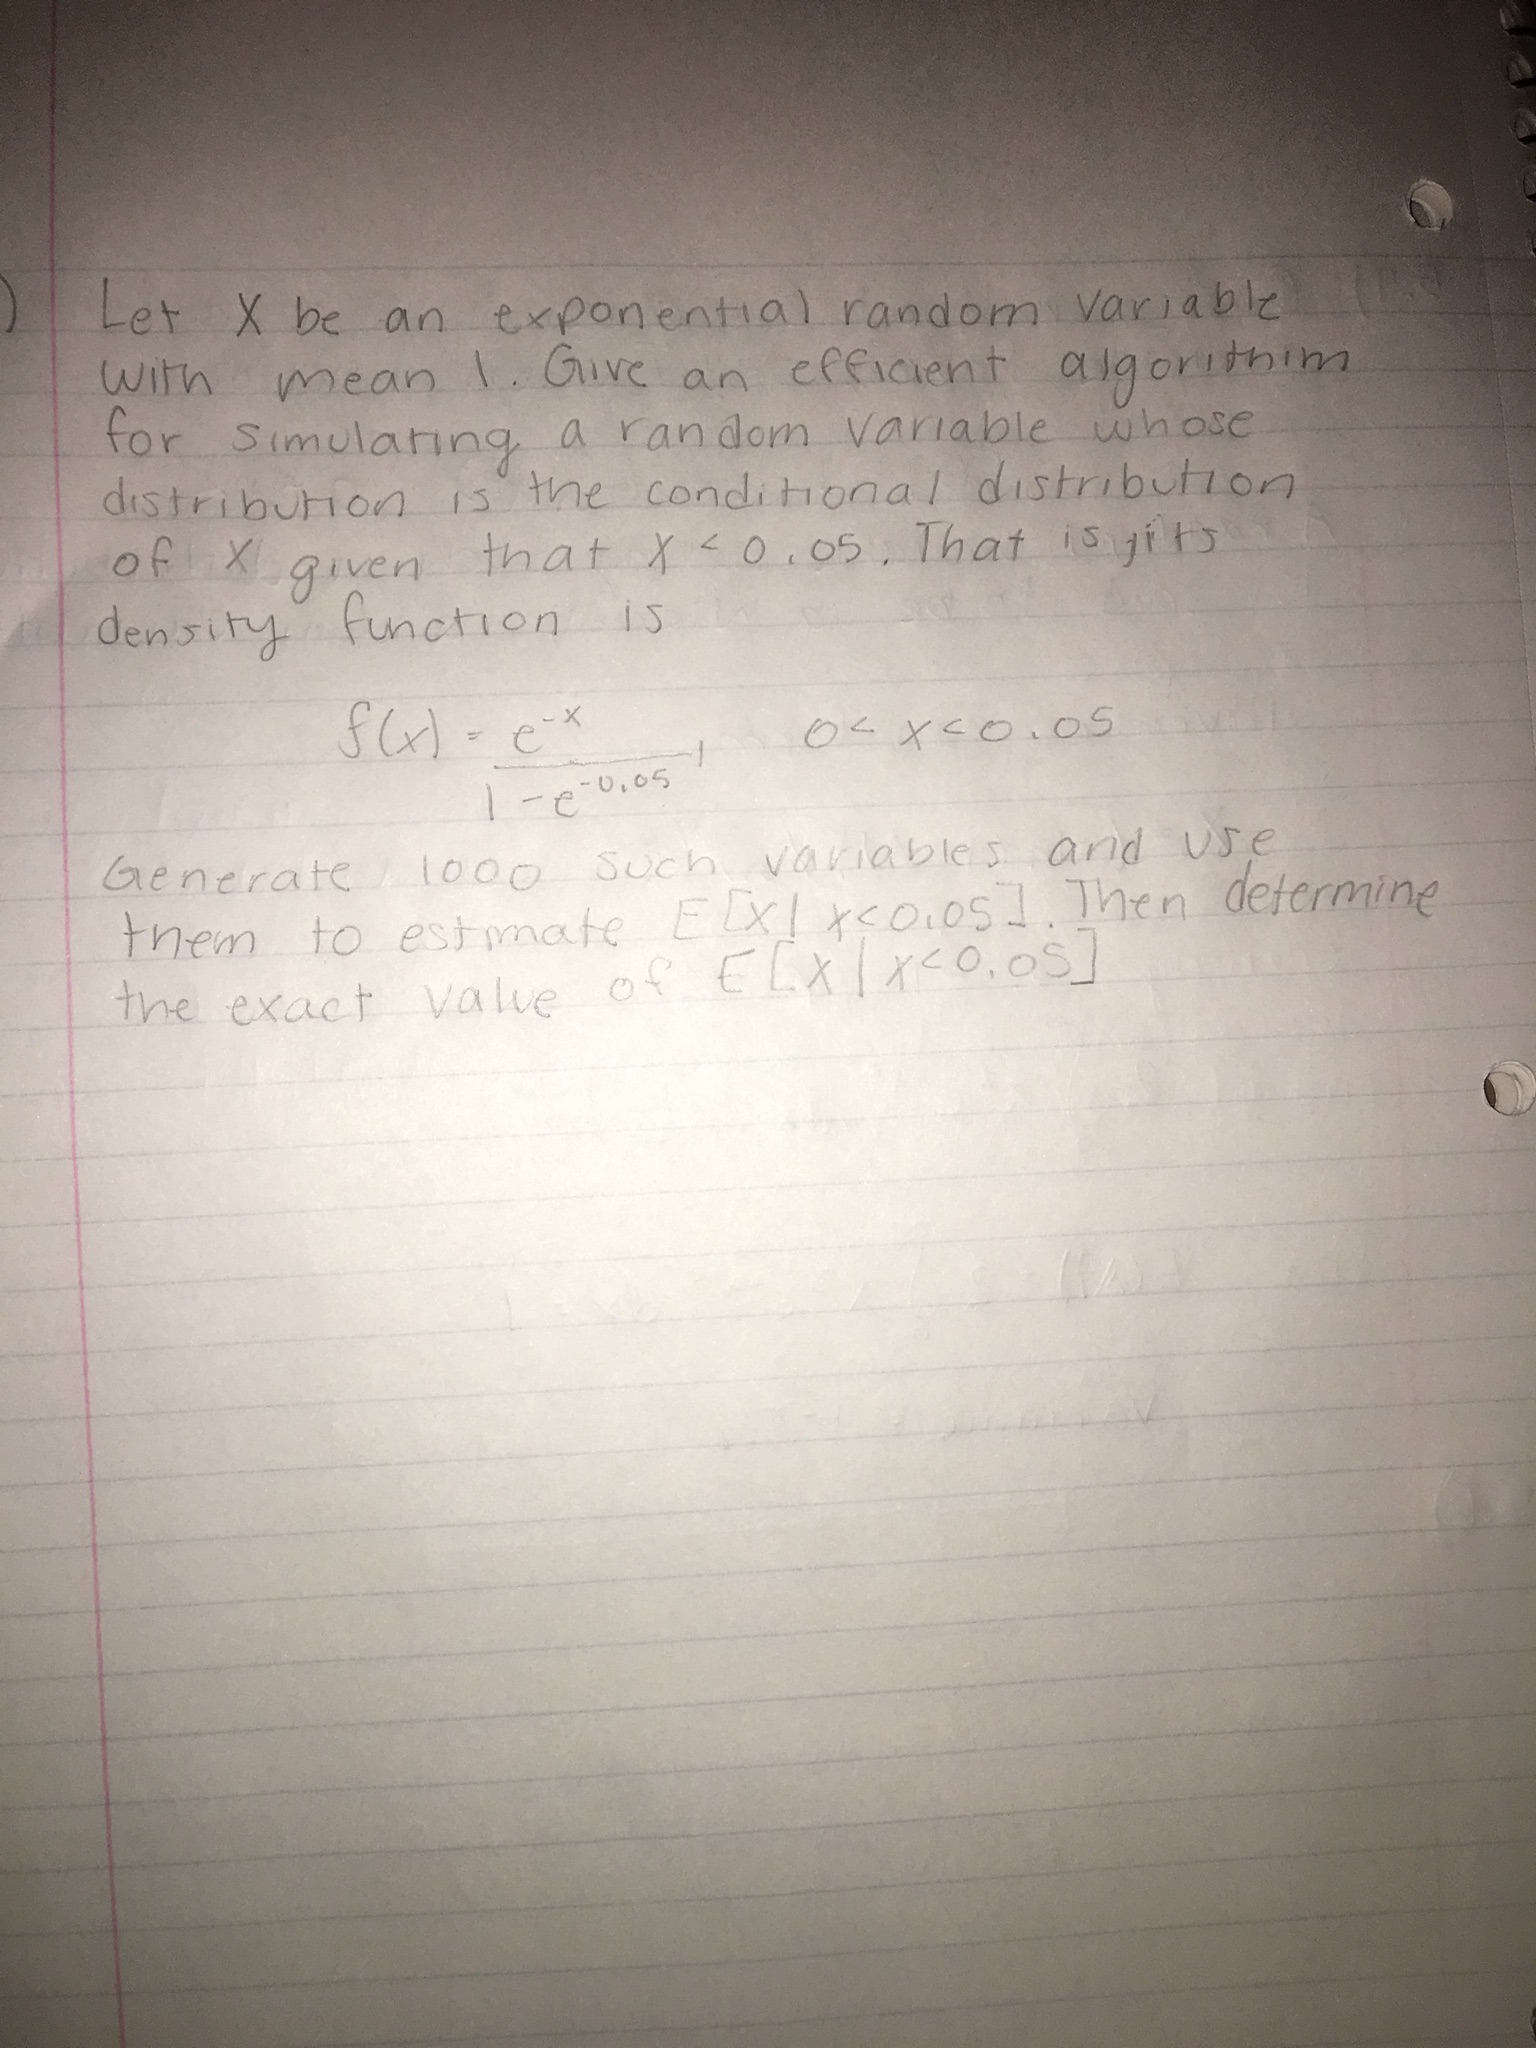 ) Let X be an exponential random variable
with mean 1. Give an efficient algorithim
for simulating a random variable whose
distribution is the conditional distribution
of X given that X < 0.05. That is, its
density function is
f(x) = e^-x / 1 - e^-0.05 , 0 < x < 0.05
Generate 1000 such variables and use
them to estmate E[X | x<0.05]. Then determine
the exact value of E[X | x<0.05]